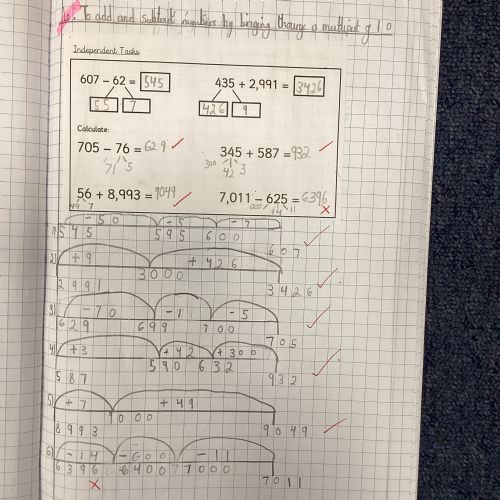 LO: To add and subtract numbers by bringing through a multiple of 10
Independent Tasks
607 – 62 = 545 435 + 2,991 = 3426
55 7 426 9
Calculate:
705 – 76 = 629 345 + 587 = 932
71 5 300 42 3
56 + 8,993 = 9049 7,011 – 625 = 6396
49 7 600 14 11
1) -50 -5 -7
545 595 600 607
2) +9 +426
2991 3000 3426
3) -70 -1 -5
629 699 700 705
4) +3 +42 +300
587 590 632 932
5) +7 +49
8993 9000 9049
6) -14 -600 -11
6396 6400 7000 7011